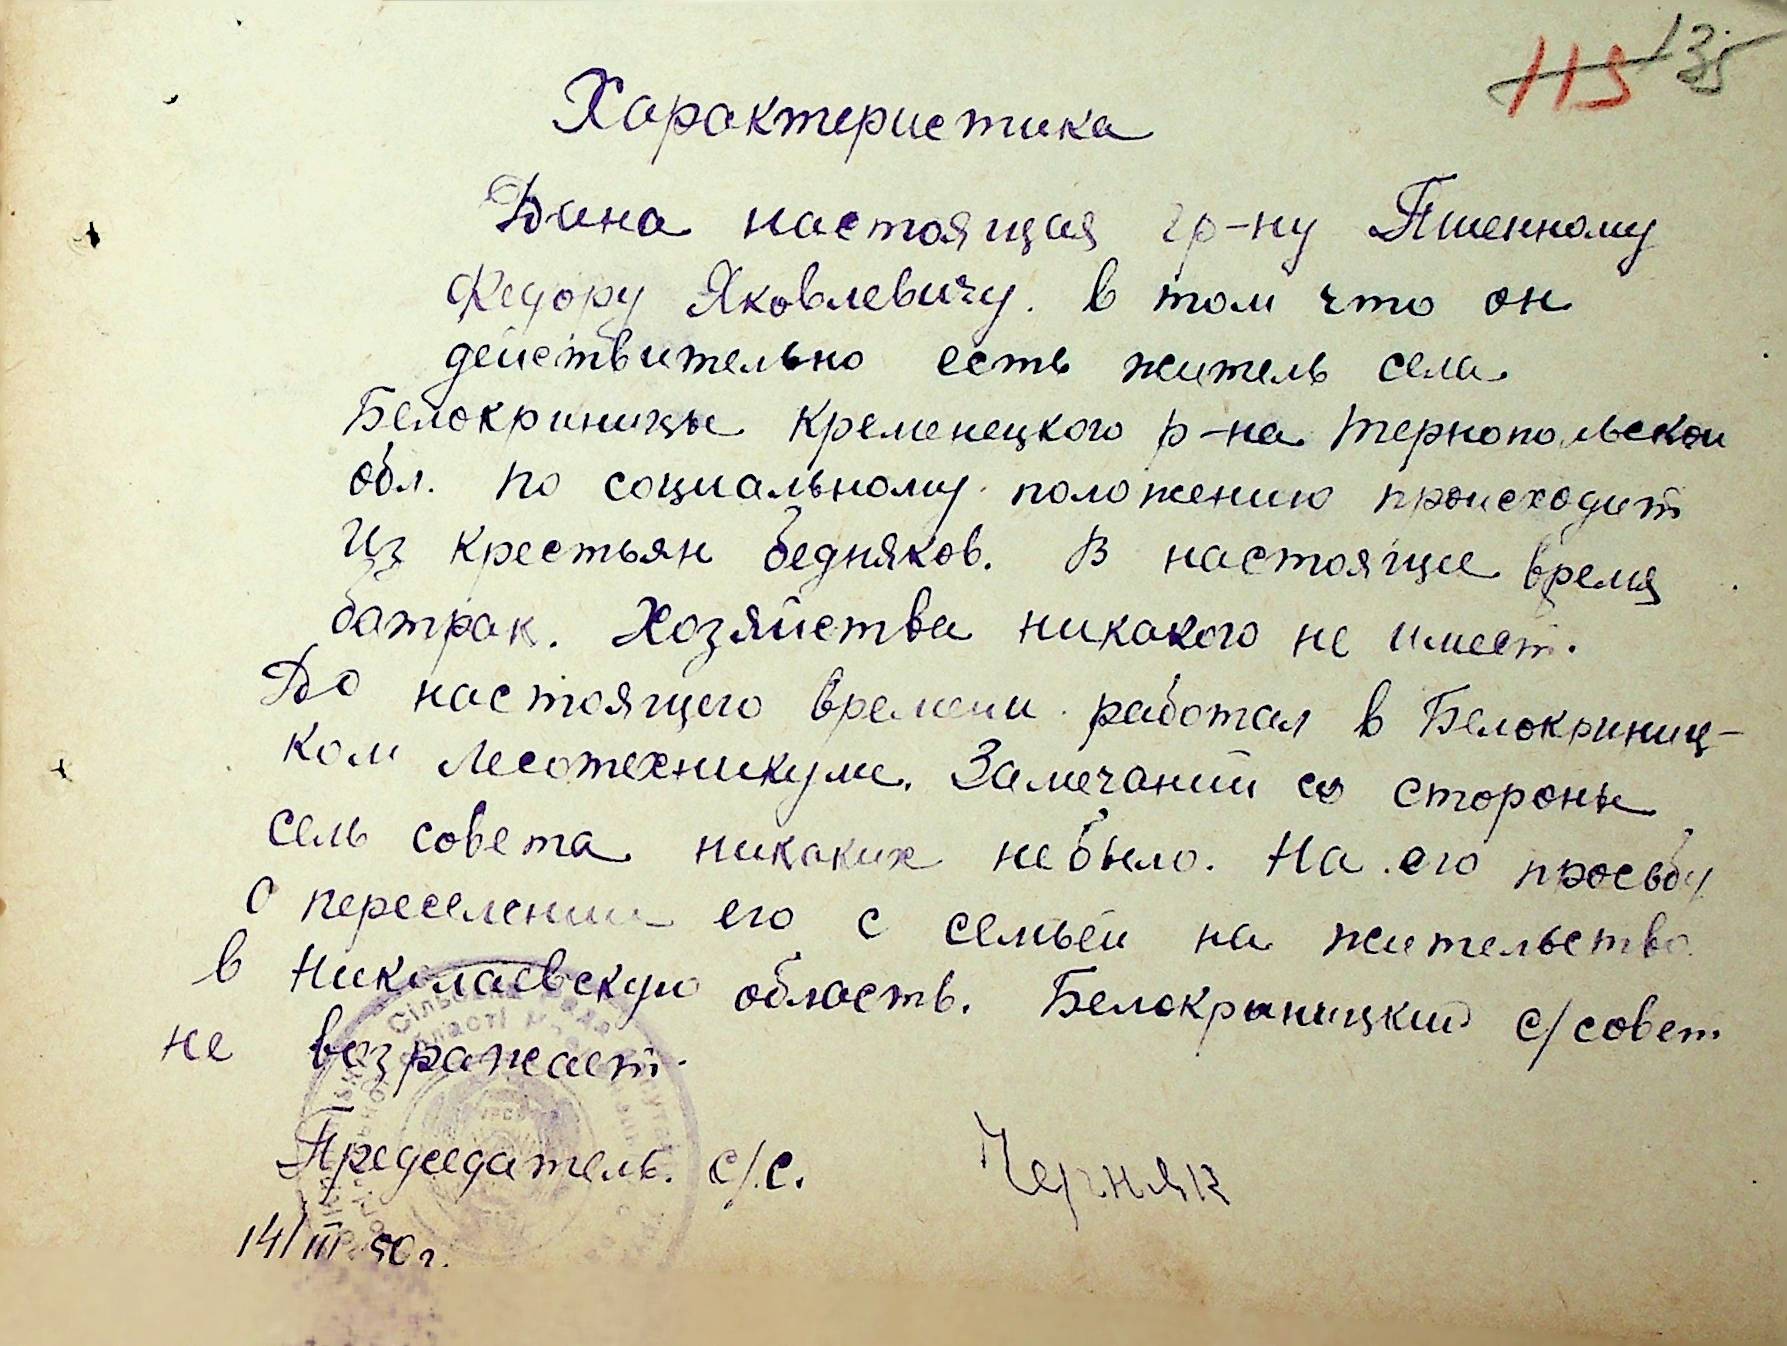 115 135
Характеристика
Дина настоящая гр-ну Пшенному
Федору Яковлевичу. в том что он
действительно есть житель села
Белокриницы Кременецкого р-на Тернопольской
обл. по социальному положению происходит
из крестьян бедняков. В настоящие время
батрак. Хозяйства никакого не имеет.
До настоящего времени работал в Белокриниц-
ком лесотехникуме. Замечаний со стороны
сель совета никаких небыло. На его просьбу
о переселении его с семьей на жительство
в Николаевскую область. Белокриницкий с/совет
не возражает.
Председатель. с/с. Черняк
14/III 50 г.